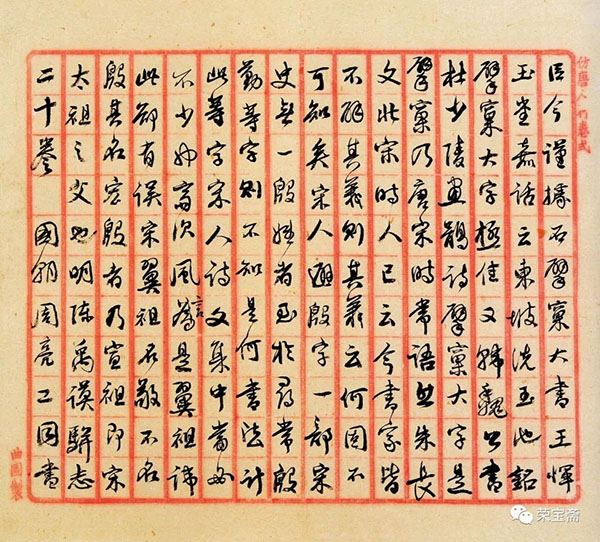 仿唐人行卷式
臣今謹據石擘窠大書王惲
玉堂嘉話云東坡洗玉池銘
擘窠大字極佳又韓魏公書
杜少陵畫鶻詩擘窠大字是
擘窠乃唐宋時常語也朱長
文北宋時人已云今書家皆
不解其義則其義云何固不
可知矣宋人避殷字一部宋
史無一殷姓者至於尋常殷
勤等字則不知是何書法計
此等字宋人詩文集中當必
不少如齊次風言為是翼祖諱
此卻有誤宋翼祖名敬不名
殷其名宏殷者乃宣祖即宋
太祖之父也明陳禹謨駢志
二十卷 國朝周亮工同書
曲園製
荣宝斋